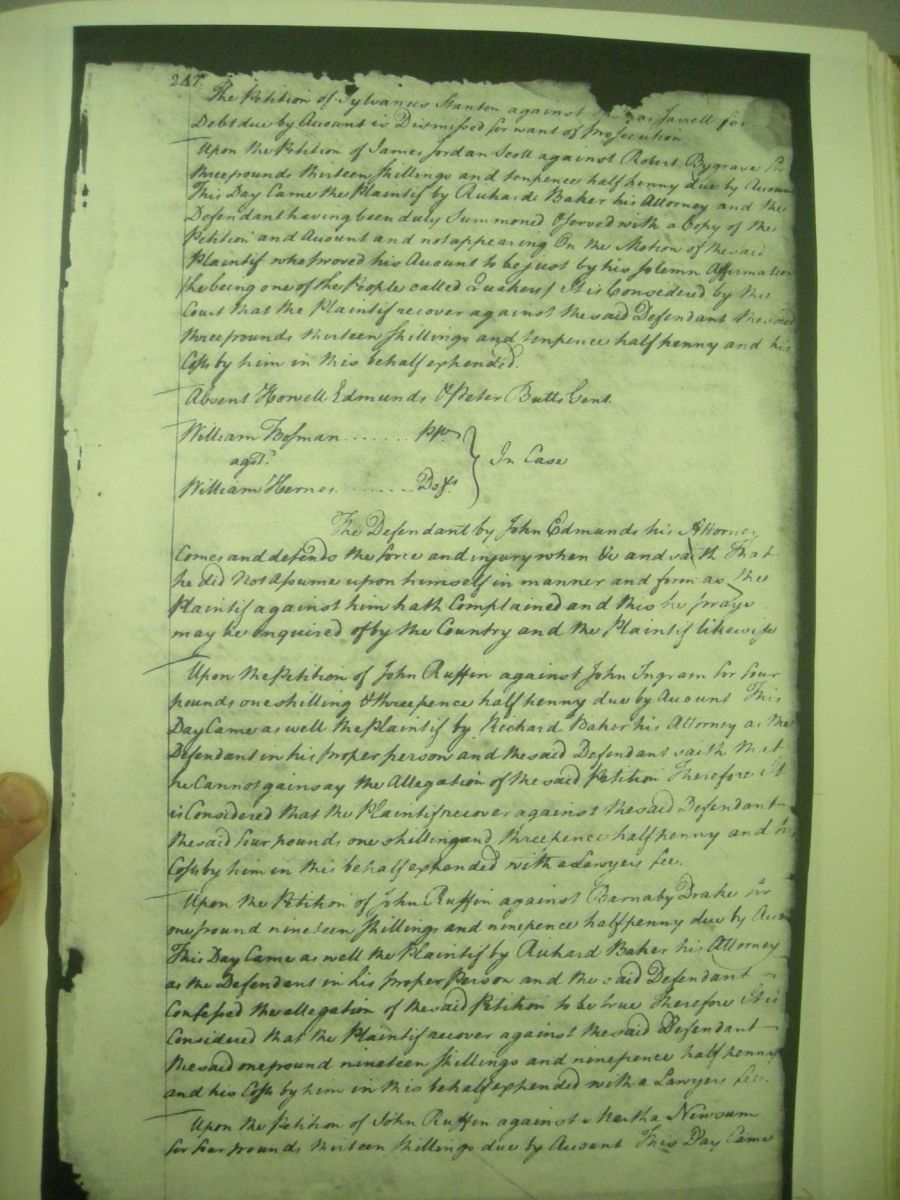 247
The Petition of Sylvanus Stanton against Farrell for
Debt due by Account is Dismissed for want of Prosecution
Upon the Petition of James Jordan Scott against Robert Bygrave for
three pounds thirteen shillings and tenpence half penny due by Account
This Day Came the Plaintif by Richard Baker his Attorney and the
Defendant having been duly Summoned & served with a Copy of the
Petition and Account and not appearing On the Motion of the said
Plaintif who proved his Account to be just by his solemn Affirmation
(he being one of the People called Quakers) it is Considered by the
Court that the Plaintif recover against the said Defendant the said
three pounds thirteen shillings and tenpence half penny and his
Costs by him in this behalf expended.
Absent Howell Edmunds & Peter Butts Gent.
William Bosman ........ pltf
agst.
William Hernes ........ Deft.
In Case
The Defendant by John Edmunds his Attorney
Comes and defends the force and injury when &c and saith That
he did not Assume upon himself in manner and form as the
Plaintif against him hath Complained and this he prays
may be enquired of by the Country and the Plaintif likewise
Upon the Petition of John Ruffin against John Ingram for four
pounds one shilling & three pence half penny due by Account This
Day Came as well the Plaintif by Richard Baker his Attorney as the
Defendant in his proper person and the said Defendant saith that
he Cannot gainsay the Allegation of the said Petition Therefore It
is Considered that the Plaintif recover against the said Defendant
the said four pounds one shilling and threepence half penny and his
Costs by him in this behalf expended with a Lawyers fee.
Upon the Petition of John Ruffin against Barnaby Drake for
one pound nineteen shillings and ninepence half penny due by Acco
This Day Came as well the Plaintif by Richard Baker his Attorney
as the Defendant in his proper Person and the said Defendant
Confessed the allegation of the said Petition to be true Therefore It is
Considered that the Plaintif recover against the said Defendant
the said one pound nineteen shillings and ninepence half penny
and his Costs by him in this behalf expended with a Lawyers fee.
Upon the Petition of John Ruffin against Martha Newsum
for four pounds thirteen shillings due by Account This Day Came